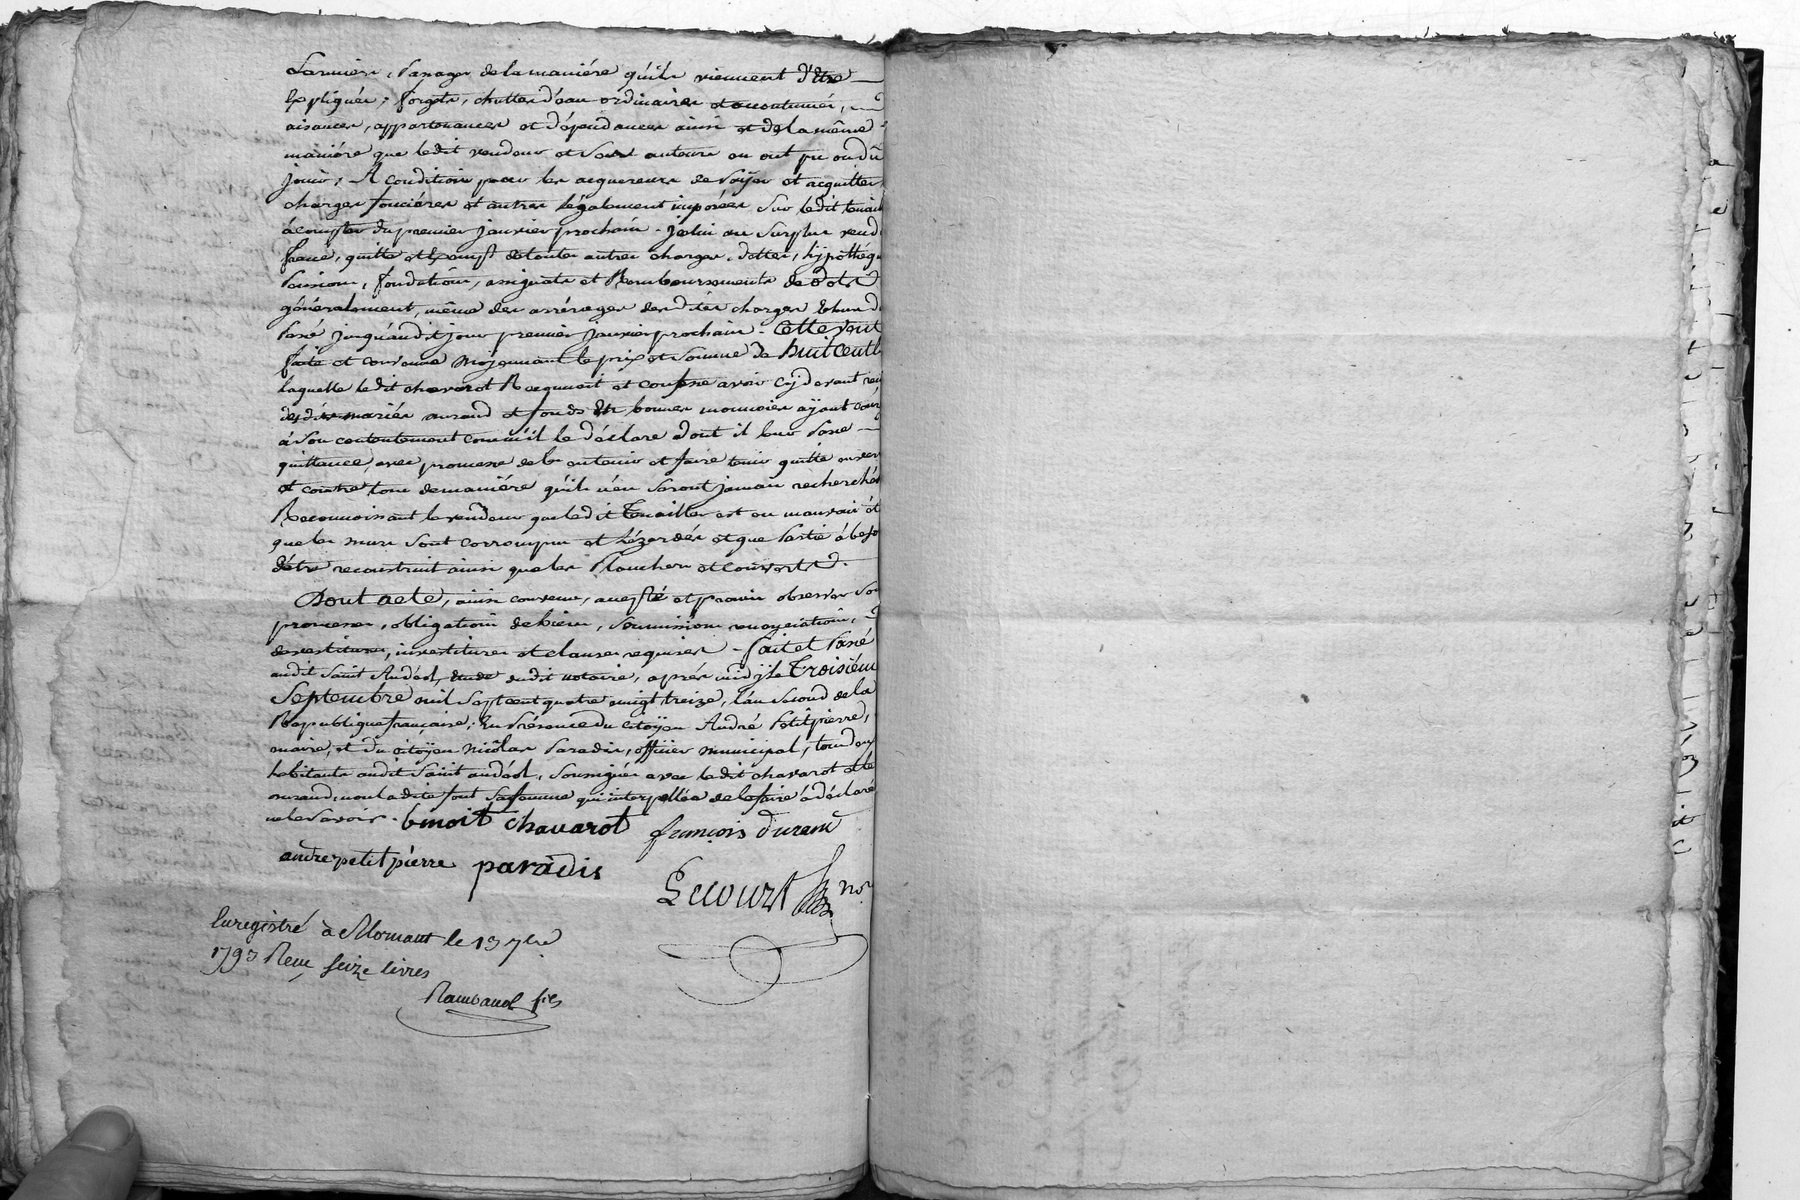 Lumière, passages de la manière qu'ils viennent d'être
Expliqués; forgets, chuttes d'eau ordinaires et accoutumés,
aisances, appartenances et dépendances ainsi et de la même
manière que ledit vendeur et ses auteurs en ont pu ou dû
jouir; A condition pour les acquereurs de payer et acquitter
charges foncières et autres légalement imposées sur ledit
à compter du premier janvier prochain - au surplus
franc, quitte et exempt de toutes autres charges, dettes, hypothéqu
Pensions, fondations, assignats et Remboursements de dots
généralement, même des arrérages desdites charges
Passé jusqu'audit jour premier janvier prochain - Cette vent
faite et convenue moyennant le prix et somme de huit cent
laquelle ledit chavarot Reconnoit et confesse avoir cy devant
desdits mariés durand et fonds En bonnes monnoies ayant
à son contentement comm'il le déclare dont il leur passe
quittance, avec promesse de les en tenir et faire tenir quitte envers
et contre tous de manière qu'ils n'en seront jamais recherchés
Reconnoissant le vendeur que ledit est en mauvais ét
que les murs sont corrompus et lézardés et que partie à beso
d'être reconstruit ainsi que les Planchers et couverts.
Dont acte, ainsi convenu, accepté et promis observer
promesses, obligation de biens, soumissions renonciations,
devestitures, investitures et clauses requises - fait et passé
audit Saint Andéol, étude dudit notaire, après midy, le Troisième
Septembre mil sept cent quatre vingt treize, l'an second de la
Republique française; En présence du citoyen André Petitpierre,
maire, et du citoyen nicolas Paradis, officier municipal, tous deux
habitants audit Saint andéol, soussignés avec ledit chavarot et le
durand, non ladite font sa femme qui interpellée de le faire a déclaré
ne le savoir. benoit chavarot françois durand
andre petit pierre paradis
Lecourt nore
Enregistré à Mornant le 13 7bre
1793 Reçu seize livres
Rambaud fils